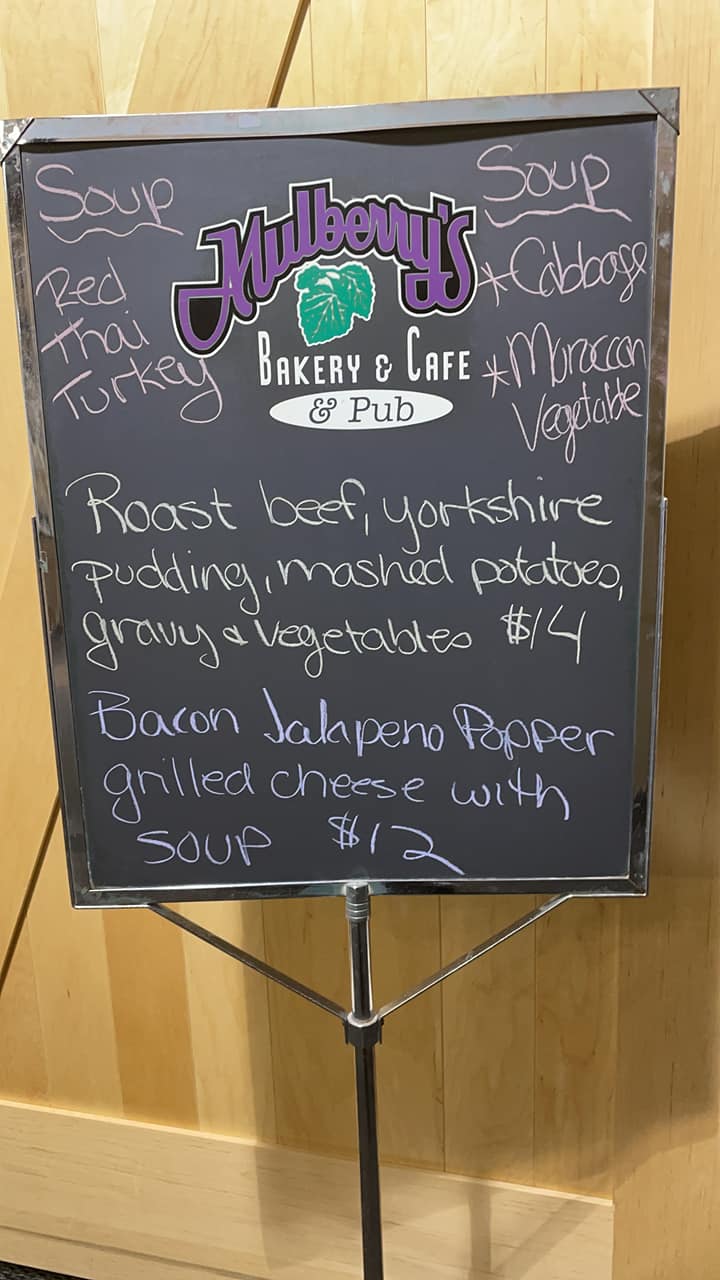 Soup
Red
Thai
Turkey
Mulberry's
BAKERY & CAFE
& Pub
Soup
*Cabbage
*Moroccan
Vegetable
Roast beef, yorkshire
pudding, mashed potatoes,
gravy & vegetables $14
Bacon Jalapeno Popper
grilled cheese with
soup $12